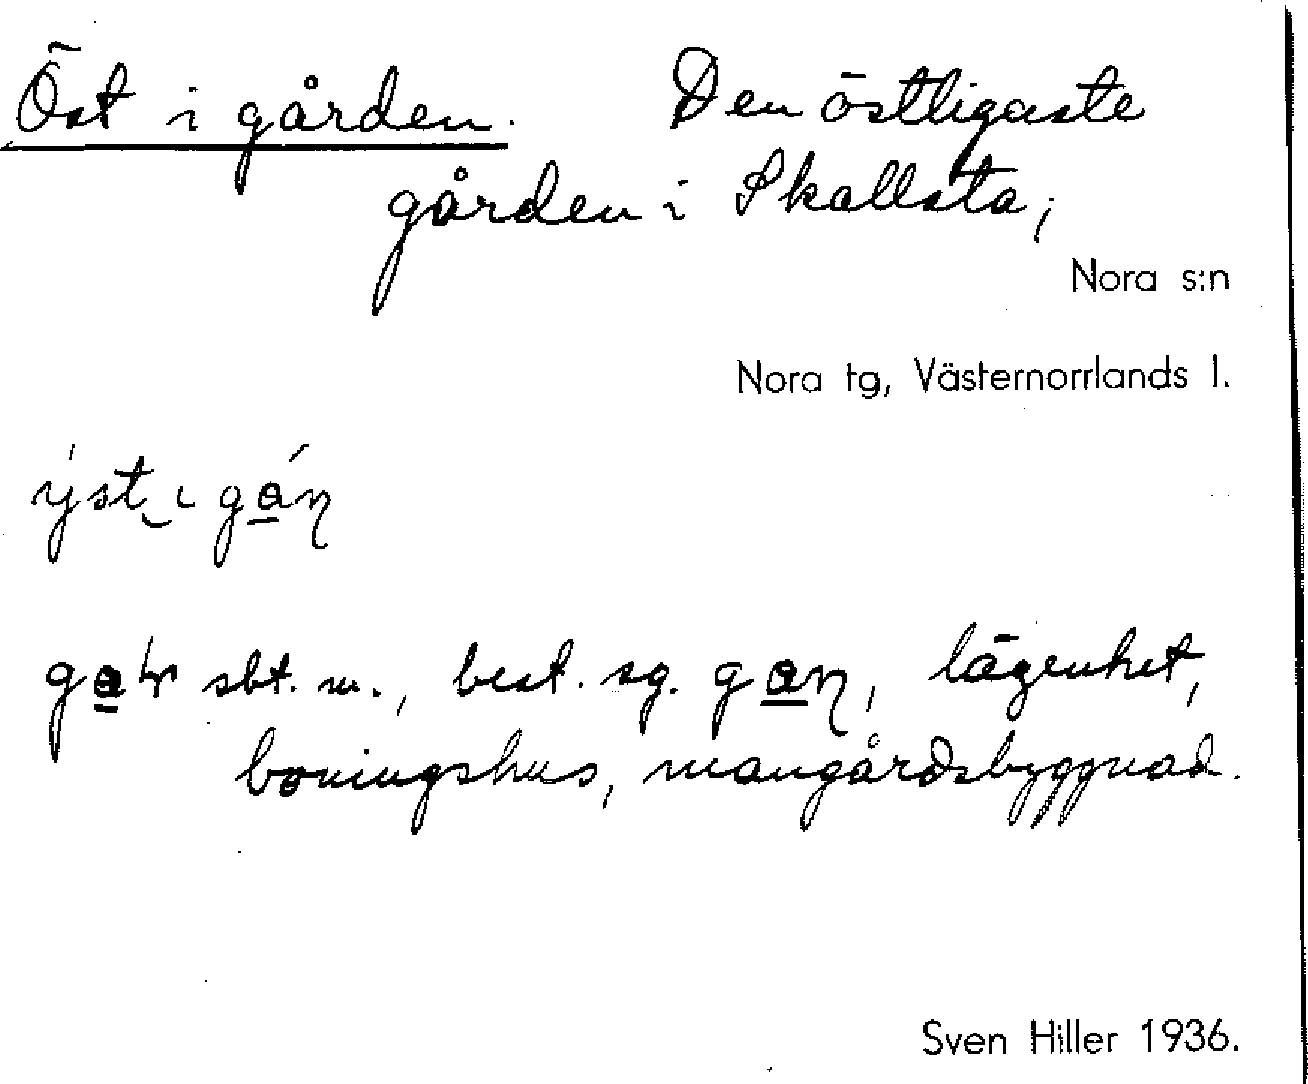 Öst i gården. Den östligaste
gården i Skallsta;
Nora s:n
Nora tg, Västernorrlands l.
sbt. m., best. sg. lägenhet,
boningshus, mangårdsbyggnad.
Sven Hiller 1936.